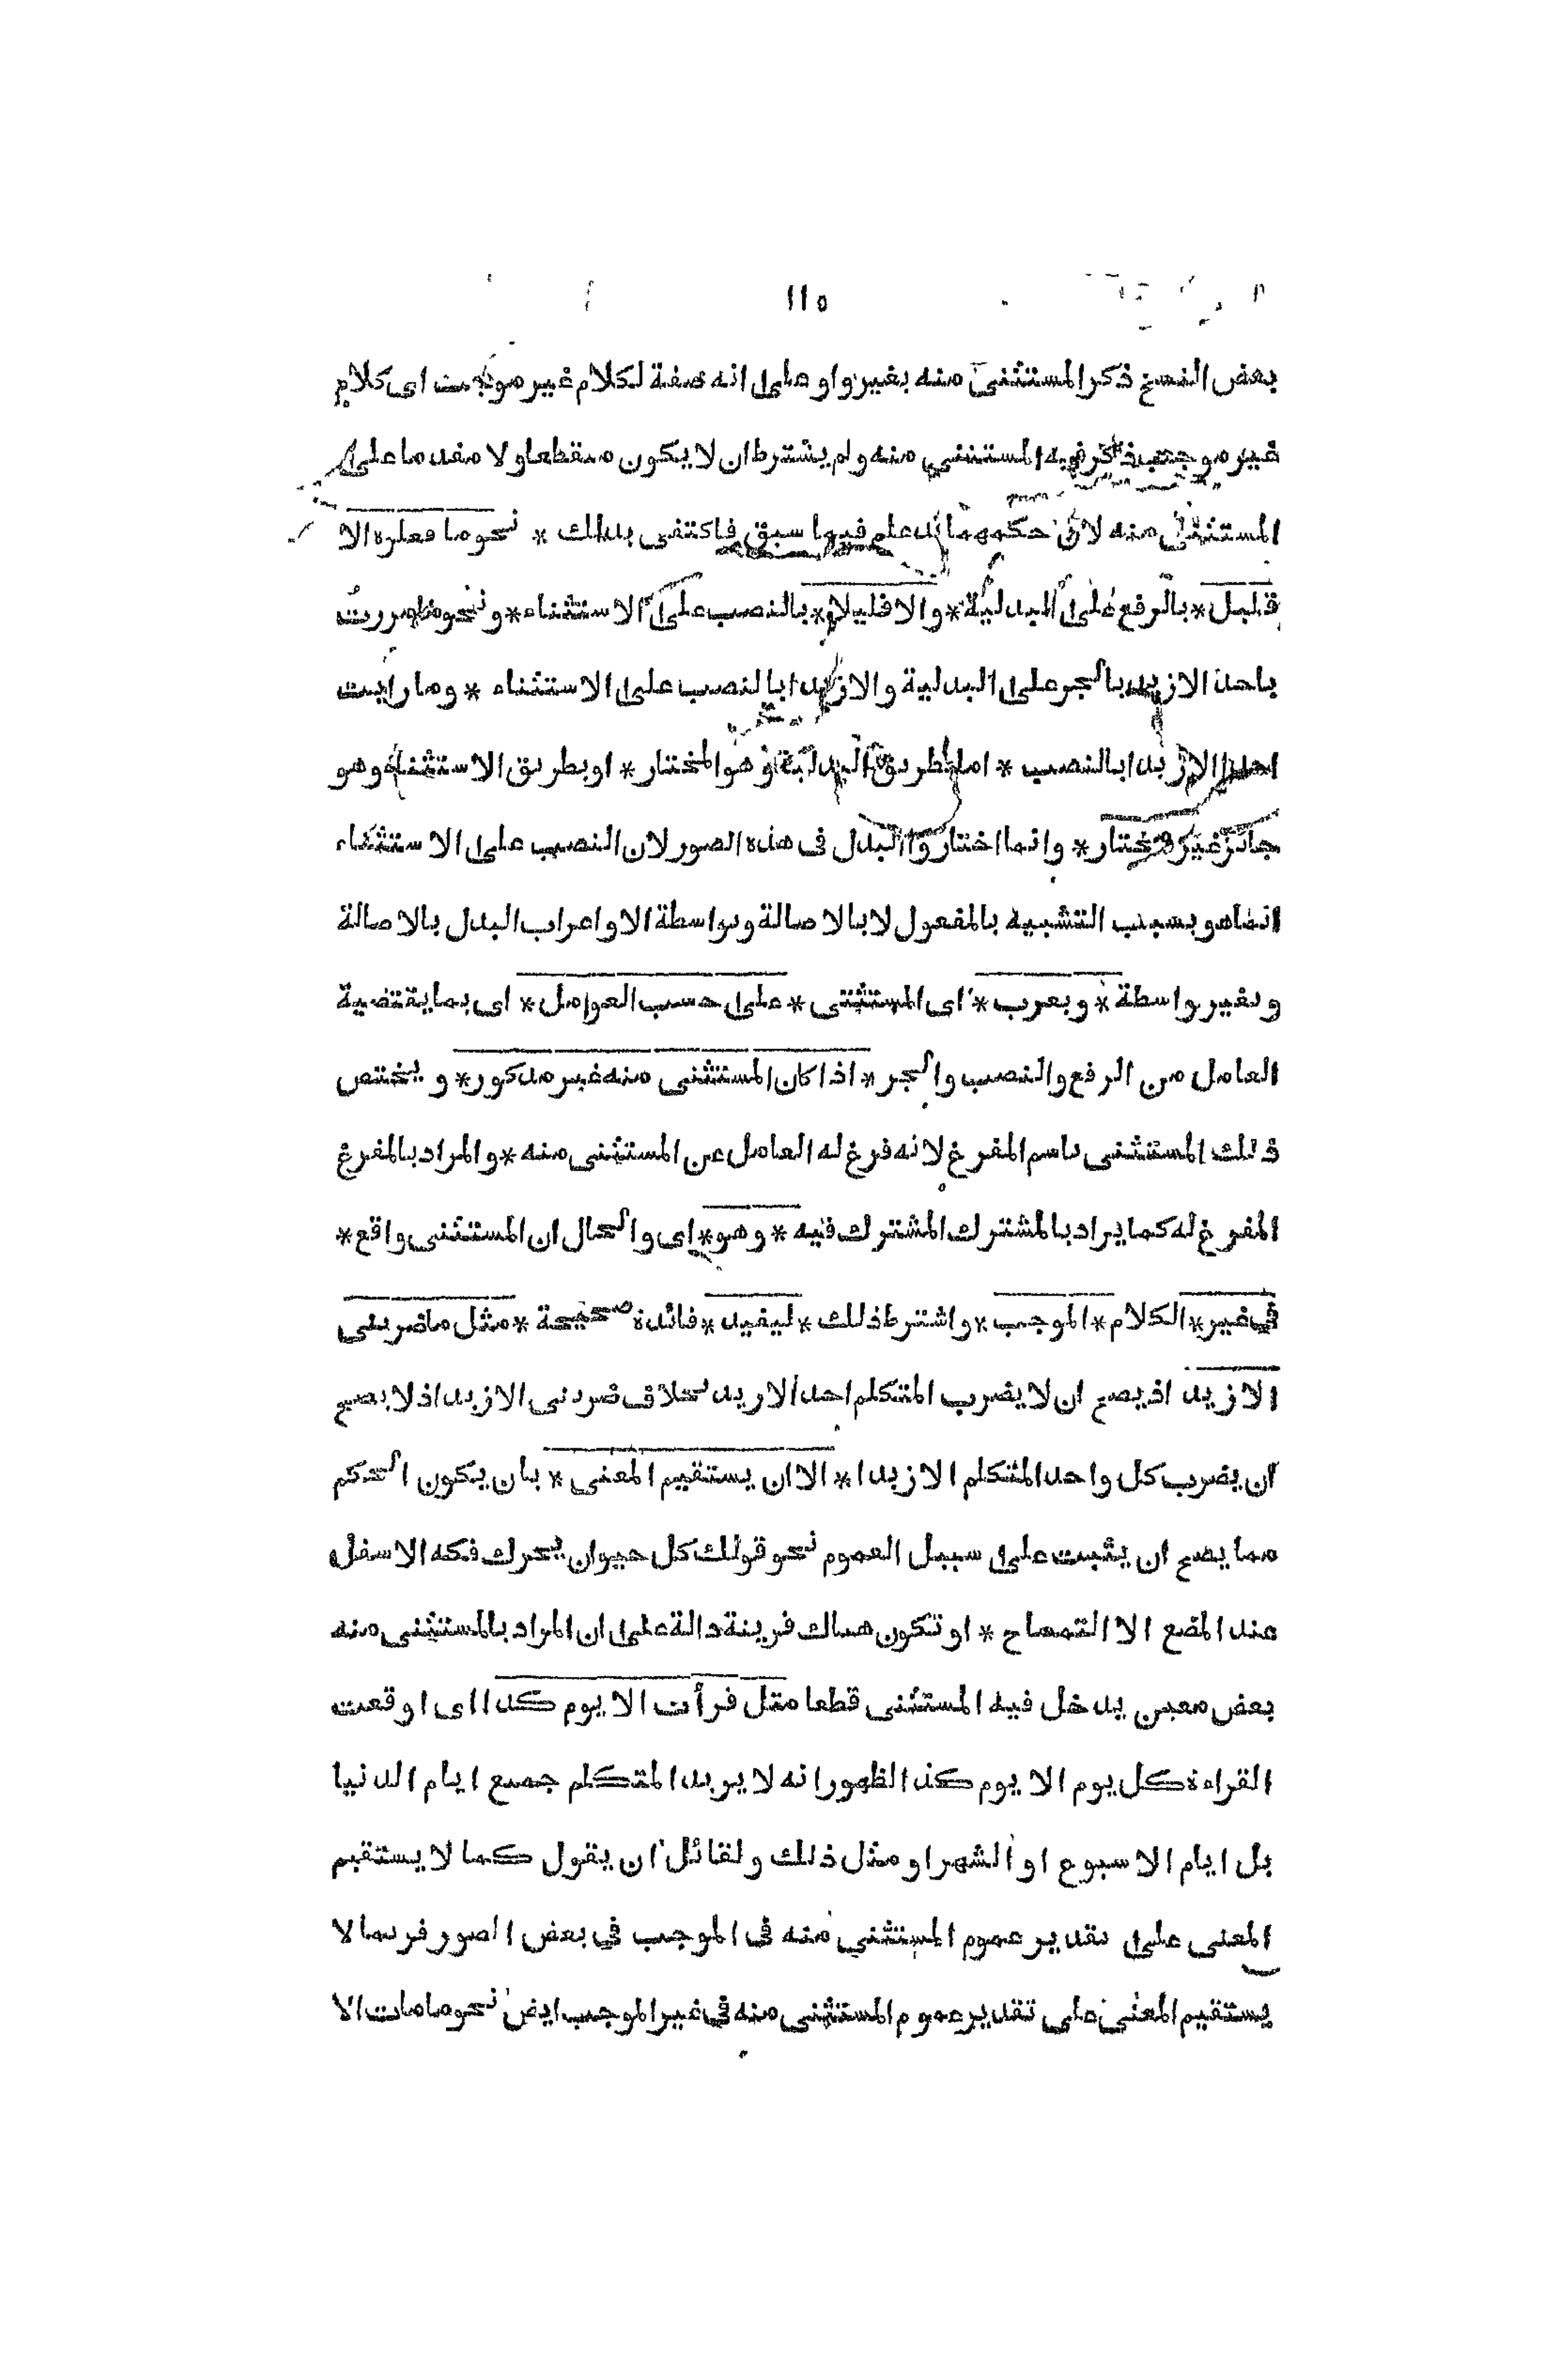 ١١٥
بعض النسخ ذكر المستثنى منه بغير واو على انه صفة لكلام غير موجب اى كلام
غير موجب ذكر فيه المستثنى منه ولم يشترط ان لا يكون منقطعا ولا مقدما على
المستثنى منه لان حكمهما قد علم فيما سبق فاكتفى بذلك * نحو ما فعلوه الا
قليل * بالرفع على البدلية * والا قليلا * بالنصب على الاستثناء * ونحو ما مررت
باحد الا زيد بالجر على البدلية والا زيدا بالنصب على الاستثناء * وما رايت
احدا الا زيدا بالنصب * اما بطريق البدلية وهو المختار * او بطريق الاستثناء وهو
جائز غير مختار * وانما اختاروا البدل فى هذه الصور لان النصب على الاستثناء
انما هو بسبب التشبيه بالمفعول لا بالاصالة وبواسطة الا واعراب البدل بالاصالة
وبغير واسطة * ويعرب * اى المستثنى * على حسب العوامل * اى بما يقتضية
العامل من الرفع والنصب والجر * اذا كان المستثنى منه غير مذكور * و يختص
ذلك المستثنى باسم المفرغ لانه فرغ له العامل عن المستثنى منه * والمراد بالمفرغ
المفرغ له كما يراد بالمشترك المشترك فيه * وهو * اى والحال ان المستثنى واقع *
فى غير * الكلام * الموجب * واشترط ذلك * ليفيد * فائدة صحيحة * مثل ما ضربنى
الا زيد اذ يصح ان لا يضرب المتكلم احد الا زيد بخلاف ضربنى الا زيد اذ لا يصح
ان يضرب كل واحد المتكلم الا زيدا * الا ان يستقيم المعنى * بان يكون الحكم
مما يصح ان يثبت على سبيل العموم نحو قولك كل حيوان يحرك فكه الاسفل
عند المضغ الا التمساح * او تكون هناك قرينة دالة على ان المراد بالمستثنى منه
بعض معين يدخل فيه المستثنى قطعا مثل قرأت الا يوم كذا اى اوقعت
القراءة كل يوم الا يوم كذا لظهور انه لا يريد المتكلم جميع ايام الدنيا
بل ايام الاسبوع او الشهر او مثل ذلك ولقائل ان يقول كما لا يستقيم
المعنى على تقدير عموم المستثنى منه فى الموجب فى بعض الصور فربما لا
يستقيم المعنى على تقدير عموم المستثنى منه فى غير الموجب ايض نحو ما مات الا